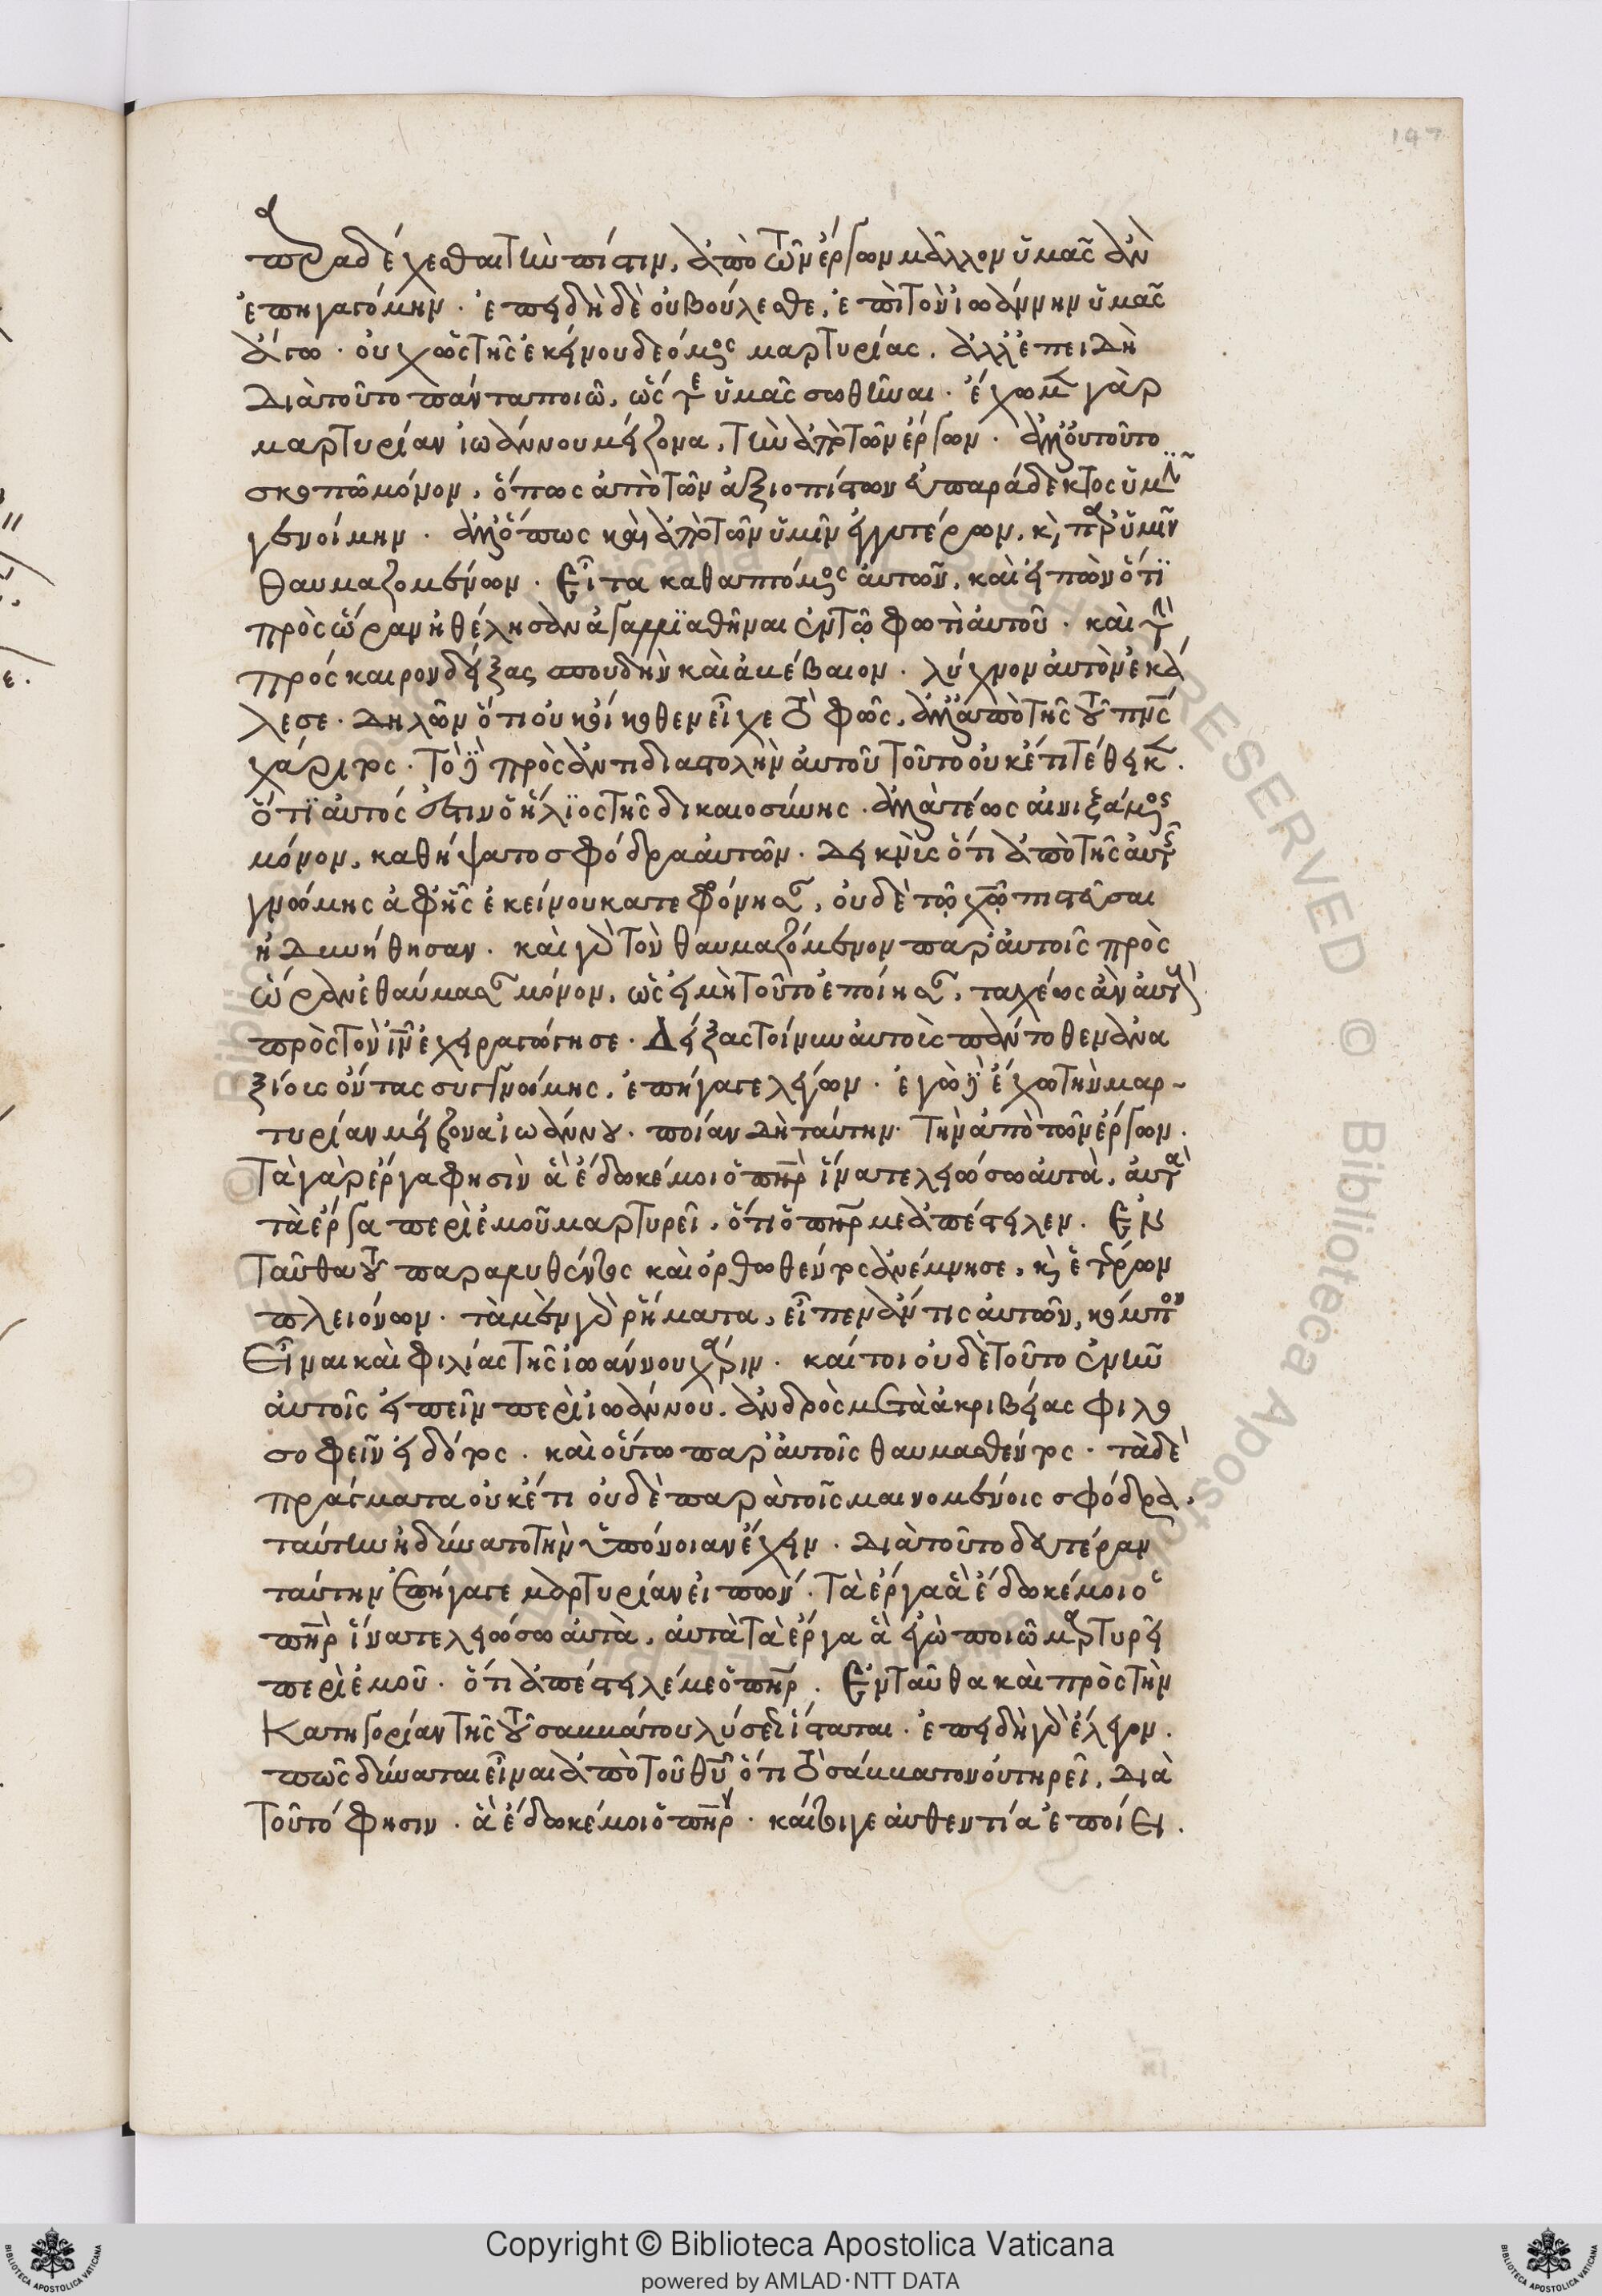 197
παραδέχεσθαι τὴν πίστιν, ἀπὸ τῶν ἔργων μᾶλλον ὑμᾶς ἂν
ἐπηγαγόμην. ἐπειδὴ δὲ οὐ βούλεσθε, ἐπὶ τὸν ἰωάννην ὑμᾶς
ἄγω. οὐχ ὡς τῆς ἐκείνου δεόμενος μαρτυρίας. ἀλλ' ἐπειδὴ
διὰ τοῦτο πάντα ποιῶ, ὥστε ὑμᾶς σωθῆναι. ἔχω μὲν γὰρ
μαρτυρίαν ἰωάννου μείζονα, τὴν ἀπὸ τῶν ἔργων. ἀλλ' οὐ τοῦτο
σκοπῶ μόνον, ὅπως ἀπὸ τῶν ἀξιοπίστων εὐπαράδεκτος ὑμῖν
γενοίμην. ἀλλ' ὅπως καὶ ἀπὸ τῶν ὑμῖν
θαυμαζομένων. Εἶτα καθαπτόμενος αὐτῶν, καὶ εἰπὼν ὅτι
πρὸς ὥραν ἠθέλησαν ἀγαλλιαθῆναι ἐν τῷ φωτὶ αὐτοῦ. καὶ τὴν
πρόσκαιρον δείξας σπουδὴν καὶ ἀβέβαιον. λύχνον αὐτὸν ἐκά
λεσε. δηλῶν ὅτι οὐκ οἴκοθεν εἶχε τὸ φῶς, ἀλλ' ἀπὸ τῆς τοῦ πνς
χάριτος. Τὸ δὲ πρὸς ἀντιδιαστολὴν αὐτοῦ τοῦτο οὐκέτι τέθεικεν.
ὅτι αὐτός ἐστιν ὁ ἥλιος τῆς δικαιοσύνης. ἀλλὰ τέως αἰνιξάμενος
μόνον, καθήψατο σφόδρα αὐτῶν. δεικνὺς ὅτι ἀπὸ τῆς αὐτῆς
γνώμης ἀφ' ἧς ἐκείνου κατεφρόνησαν, οὐδὲ τῷ χῷ πιστεῦσαι
ἠδυνήθησαν. καὶ γὰρ τὸν θαυμαζόμενον παρ' αὐτοῖς πρὸς
ὥραν ἐθαύμασαν μόνον, ὡς εἰ μὴ τοῦτο ἐποίησαν, ταχέως ἂν αὐτοὺς
πρὸς τὸν ιν ἐχειραγώγησε. Δείξας τοίνυν αὐτοὺς πάντοθεν ἀνα
ξίους ὄντας συγγνώμης, ἐπήγαγε λέγων. ἐγὼ δὲ ἔχω τὴν μαρ-
τυρίαν μείζονα ἰωάννου. ποίαν δὴ ταύτην. τὴν ἀπὸ τῶν ἔργων.
Τὰ γὰρ ἔργα φησὶν ἃ ἔδωκέ μοι ὁ πηρ ἵνα τελειώσω αὐτὰ, αὐτὰ
τὰ ἔργα περὶ ἐμοῦ μαρτυρεῖ, ὅτι ὁ πηρ με ἀπέστειλεν. Ἐν
ταῦθα τοῦ παραλυθέντος καὶ ὀρθωθέντος ἀνέμνησε, καὶ ἑτέρων
πλειόνων. τὰ μὲν γὰρ ῥήματα, εἶπεν ἄν τις αὐτῶν, κόμπον
εἶναι καὶ φιλίας τῆς ἰωάννου χάριν. καίτοι οὐδὲ τοῦτο ἐνῆν
αὐτοῖς εἰπεῖν περὶ ἰωάννου. ἀνδρὸς μετὰ ἀκριβείας φιλο
σοφεῖν εἰδότος. καὶ οὕτω παρ' αὐτοῖς θαυμασθέντος. τὰ δὲ
πράγματα οὐκέτι οὐδὲ παρὰ τοῖς μαινομένοις σφόδρα,
ταύτην ἠδύνατο τὴν ὑπόνοιαν ἔχειν. διὰ τοῦτο δευτέραν
ταύτην ἐπήγαγε μαρτυρίαν εἰπών. τὰ ἔργα ἃ ἔδωκέ μοι ὁ
πηρ ἵνα τελειώσω αὐτὰ, αὐτὰ τὰ ἔργα ἃ ἐγὼ ποιῶ μαρτυρεῖ
περὶ ἐμοῦ. ὅτι ἀπέστειλέ με ὁ πηρ. Ἐνταῦθα καὶ πρὸς τὴν
κατηγορίαν τῆς τοῦ σαββάτου λύσεως ἵσταται. ἐπειδὴ γὰρ ἔλεγον.
πῶς δύναται εἶναι ἀπὸ τοῦ θυ ὅτι τὸ σάββατον οὐ τηρεῖ, διὰ
τοῦτό φησιν. ἃ ἔδωκέ μοι ὁ πηρ. καίτοιγε αὐθεντίᾳ ἐποίει.
Copyright © Biblioteca Apostolica Vaticana
powered by AMLAD·NTT DATA